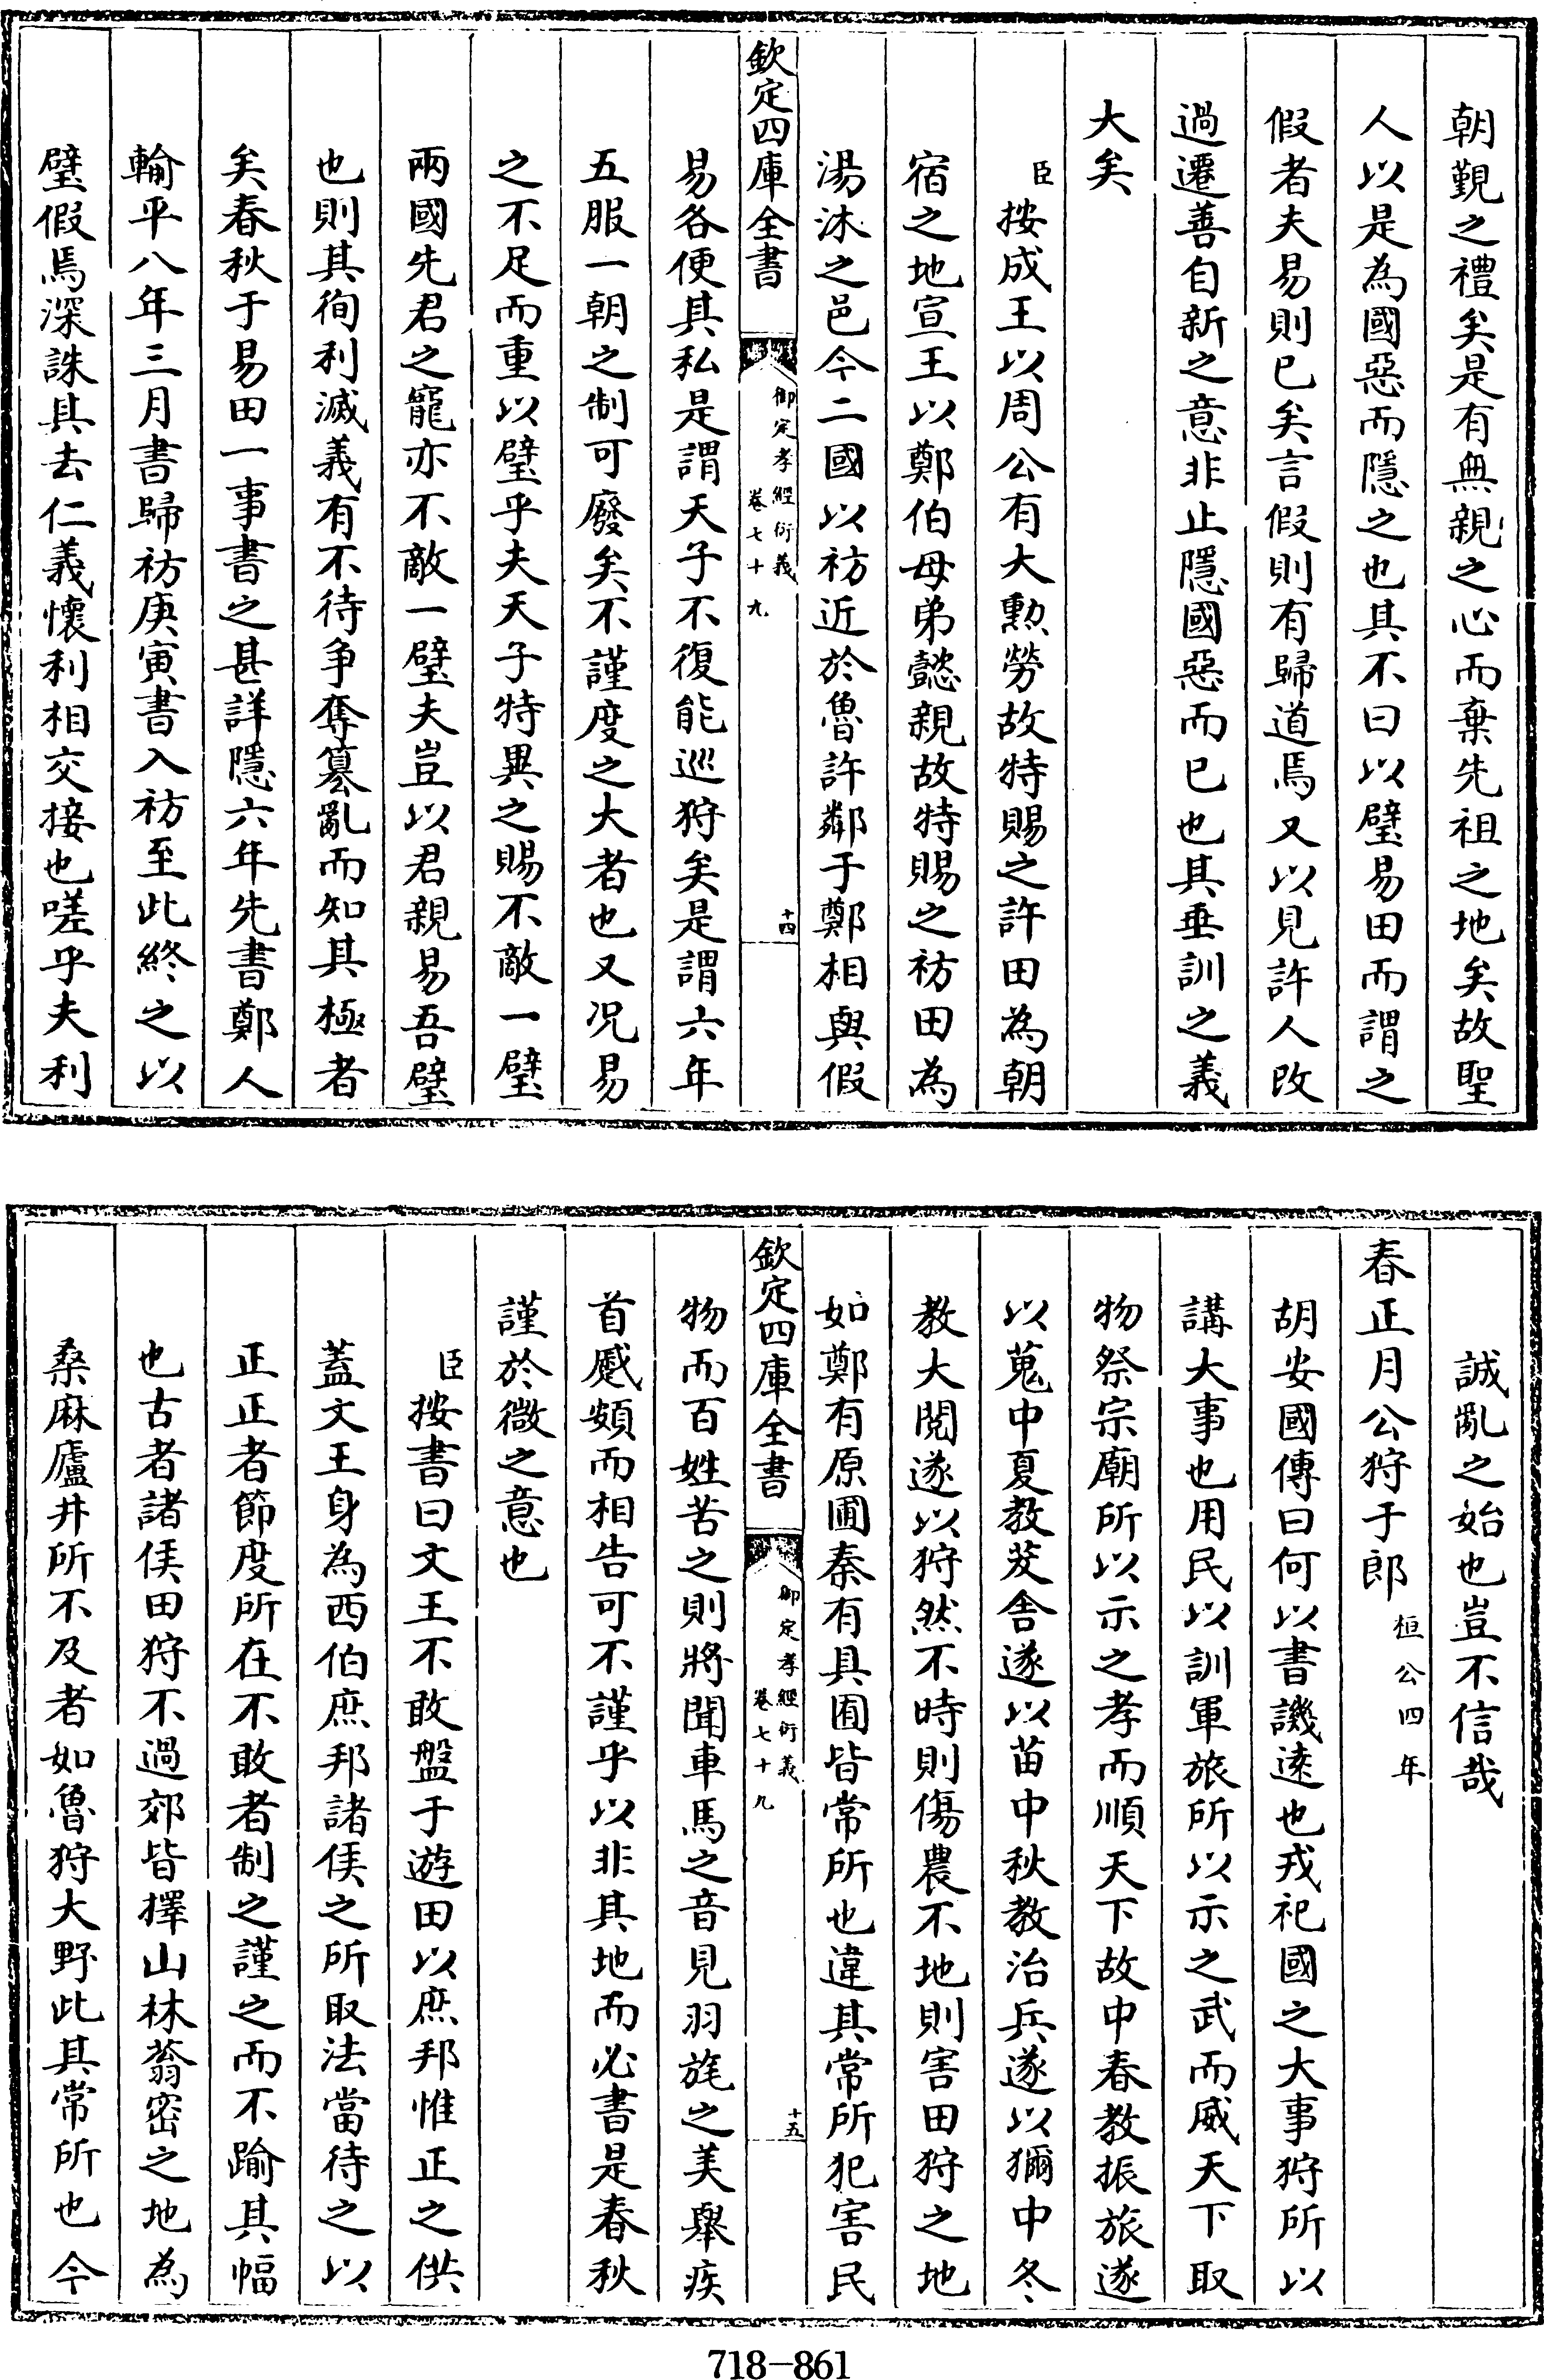 朝覲之禮矣是有無親之心而棄先祖之地矣故聖
人以是為國惡而隱之也其不曰以璧易田而謂之
假者夫易則已矣言假則有歸道焉又以見許人改
過遷善自新之意非止隱國惡而已也其垂訓之義
大矣
臣按成王以周公有大勲勞故特賜之許田為朝
宿之地宣王以鄭伯母弟懿親故特賜之祊田為
湯沐之邑今二國以祊近於魯許鄰于鄭相與假
欽定四庫全書
御定孝經衍義
卷七十九
十四
易各便其私是謂天子不復能巡狩矣是謂六年
五服一朝之制可廢矣不謹度之大者也又況易
之不足而重以璧乎夫天子特異之賜不敵一璧
兩國先君之寵亦不敵一璧夫豈以君親易吾璧
也則其徇利滅義有不待爭奪簒亂而知其極者
矣春秋于易田一事書之甚詳隱六年先書鄭人
輸平八年三月書歸祊庚寅書入祊至此終之以
璧假焉深誅其去仁義懷利相交接也嗟乎夫利
誠亂之始也豈不信哉
春正月公狩于郎桓公四年
胡安國傳曰何以書譏遠也戎祀國之大事狩所以
講大事也用民以訓軍旅所以示之武而威天下取
物祭宗廟所以示之孝而順天下故中春教振旅遂
以蒐中夏教茇舍遂以苗中秋教治兵遂以獮中冬
教大閱遂以狩然不時則傷農不地則害田狩之地
如鄭有原圃秦有具囿皆常所也違其常所犯害民
欽定四庫全書
御定孝經衍義
卷七十九
十五
物而百姓苦之則將聞車馬之音見羽旄之美舉疾
首蹙頞而相告可不謹乎以非其地而必書是春秋
謹於微之意也
臣按書曰文王不敢盤于遊田以庶邦惟正之供
蓋文王身為西伯庶邦諸侯之所取法當待之以
正正者節度所在不敢者制之謹之而不踰其幅
也古者諸侯田狩不過郊皆擇山林蓊密之地為
桑麻廬井所不及者如魯狩大野此其常所也今
718-861